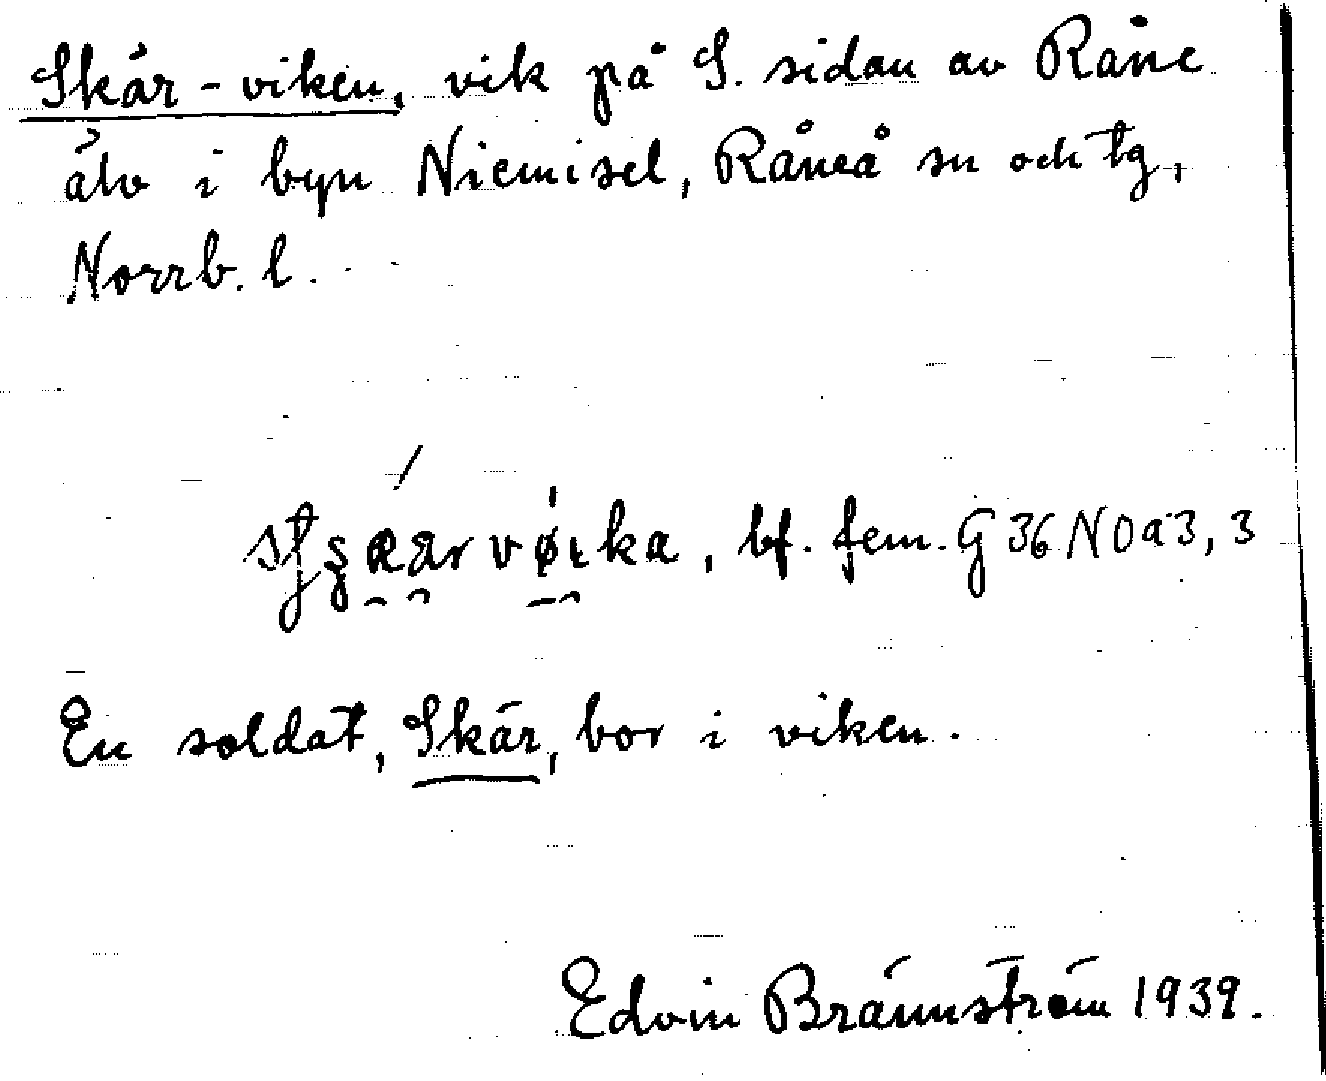 Skär-viken, vik på S. sidan av Råne
älv i byn Niemisel, Råneå sn och tg,
Norrb. l.
, bf. fem. G 36 N D a 3, 3
En soldat, Skär, bor i viken.
Edvin Brännström 1939.